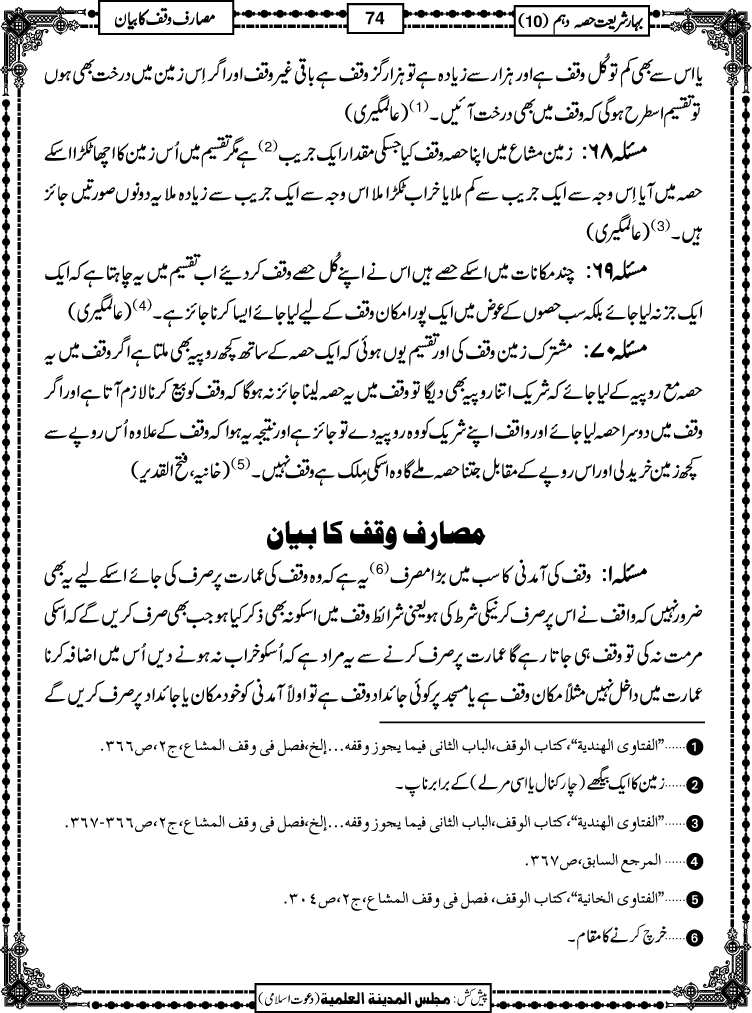 بہارِ شریعت حصہ دہم (10)
74
مصارف وقف کا بیان
یا اس سے بھی کم تو کُل وقف ہے اور ہزار سے زیادہ ہے تو ہزار گز وقف ہے باقی غیر وقف اور اگر اِس زمین میں درخت بھی ہوں
تو تقسیم اسطرح ہوگی کہ وقف میں بھی درخت آئیں۔(1) (عالمگیری)
مسئلہ ۶۸: زمین مشاع میں اپنا حصہ وقف کیا جسکی مقدار ایک جریب(2) ہے مگر تقسیم میں اُس زمین کا اچھا ٹکڑا اسکے
حصہ میں آیا اِس وجہ سے ایک جریب سے کم ملا یا خراب ٹکڑا ملا اس وجہ سے ایک جریب سے زیادہ ملا یہ دونوں صورتیں جائز
ہیں۔(3) (عالمگیری)
مسئلہ ۶۹: چند مکانات میں اسکے حصے ہیں اس نے اپنے کُل حصے وقف کردیئے اب تقسیم میں یہ چاہتا ہے کہ ایک
ایک جز نہ لیا جائے بلکہ سب حصوں کے عوض میں ایک پورا مکان وقف کے لیے لیا جائے ایسا کرنا جائز ہے۔(4) (عالمگیری)
مسئلہ ۷۰: مشترک زمین وقف کی اور تقسیم یوں ہوئی کہ ایک حصہ کے ساتھ کچھ روپیہ بھی ملتا ہے اگر وقف میں یہ
حصہ مع روپیہ کے لیا جائے کہ شریک اتنا روپیہ بھی دیگا تو وقف میں یہ حصہ لینا جائز نہ ہوگا کہ وقف کو بیع کرنا لازم آتا ہے اور اگر
وقف میں دوسرا حصہ لیا جائے اور واقف اپنے شریک کو وہ روپیہ دے تو جائز ہے اور نتیجہ یہ ہوا کہ وقف کے علاوہ اُس روپے سے
کچھ زمین خریدلی اور اس روپے کے مقابل جتنا حصہ ملے گا وہ اسکی مِلک ہے وقف نہیں۔(5) (خانیہ، فتح القدیر)
مصارف وقف کا بیان
مسئلہ ۱: وقف کی آمدنی کا سب میں بڑا مصرف(6) یہ ہے کہ وہ وقف کی عمارت پر صرف کی جائے اسکے لیے یہ بھی
ضرور نہیں کہ واقف نے اس پر صرف کرنیکی شرط کی ہو یعنی شرائط وقف میں اسکو نہ بھی ذکر کیا ہو جب بھی صرف کریں گے کہ اسکی
مرمت نہ کی تو وقف ہی جاتا رہے گا عمارت پر صرف کرنے سے یہ مراد ہے کہ اُسکو خراب نہ ہونے دیں اُس میں اضافہ کرنا
عمارت میں داخل نہیں مثلاً مکان وقف ہے یا مسجد پر کوئی جائداد وقف ہے تو اولاً آمدنی کو خود مکان یا جائداد پر صرف کریں گے
1......"الفتاوی الھندیۃ"،کتاب الوقف،الباب الثانی فیما یجوز وقفہ...إلخ،فصل فی وقف المشاع،ج۲،ص۳٦٦.
2......زمین کا ایک بیگھے (چار کنال یا اسی مرلے) کے برابر ناپ۔
3......"الفتاوی الھندیۃ"،کتاب الوقف،الباب الثانی فیما یجوز وقفہ...إلخ،فصل فی وقف المشاع،ج۲،ص۳٦٦-۳٦۷.
4...... المرجع السابق،ص۳٦۷.
5......"الفتاوی الخانیۃ"،کتاب الوقف، فصل فی وقف المشاع،ج۲،ص۳۰٤.
6......خرچ کرنے کا مقام۔
پیش کش: مجلس المدینۃ العلمیۃ (دعوت اسلامی)